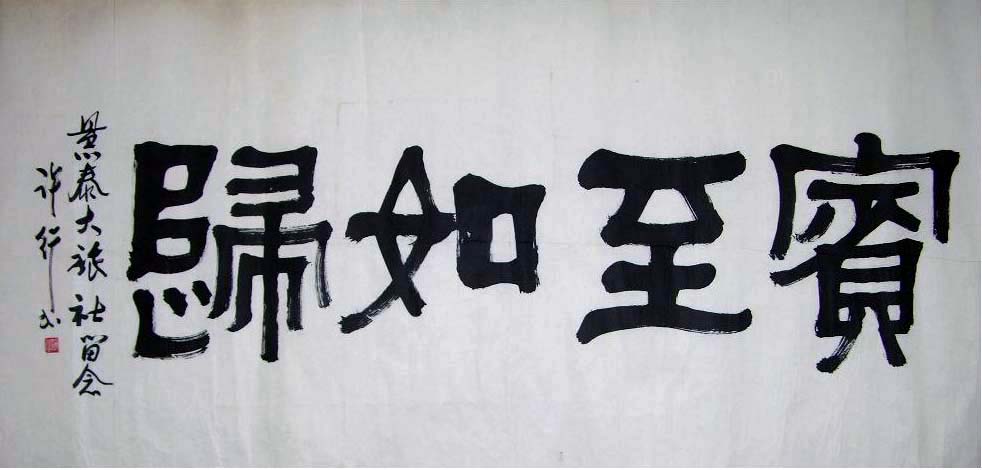 賓至如歸
景泰大旅社留念
许行书